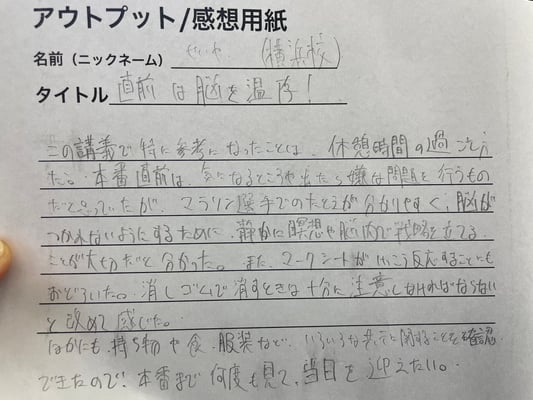 アウトプット/感想用紙
名前(ニックネーム) せいや (横浜校)
タイトル 直前は脳を温存!
この講義で特に参考になったことは、休憩時間の過ごしかた
だ。本番直前は、気になるところや出たら嫌な問題を行うもの
だと思っていたが、マラソン選手でのたとえが分かりやすく、脳が
つかれないようにするために、静かに瞑想や脳内で戦略を立てる
ことが大切だと分かった。また、マークシートがけっこう反応することにも
おどろいた。消しゴムで消すときは十分に注意しなければならない
と改めて感じた。
ほかにも、持ち物や食、服装など、いろいろな に関することを確認
できたので、本番まで何度も見て、当日を迎えたい。